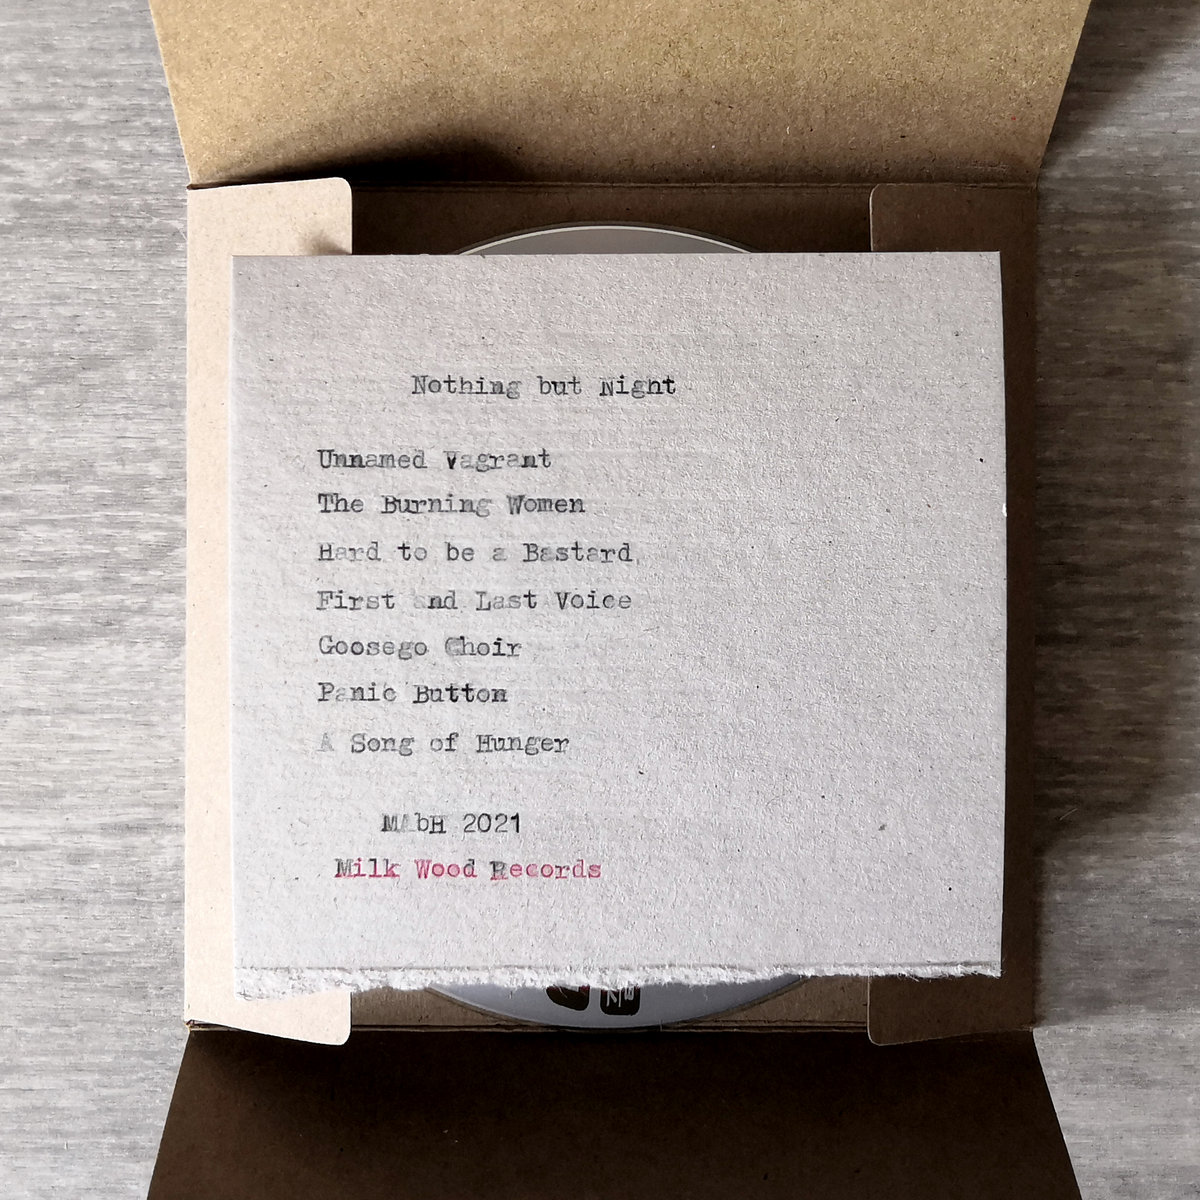 Nothing but Night
Unnamed Vagrant
The Burning Women
Hard to be a Bastard
First and Last Voice
Goosego Choir
Panic Button
A Song of Hunger
MAbH 2021
Milk Wood Records